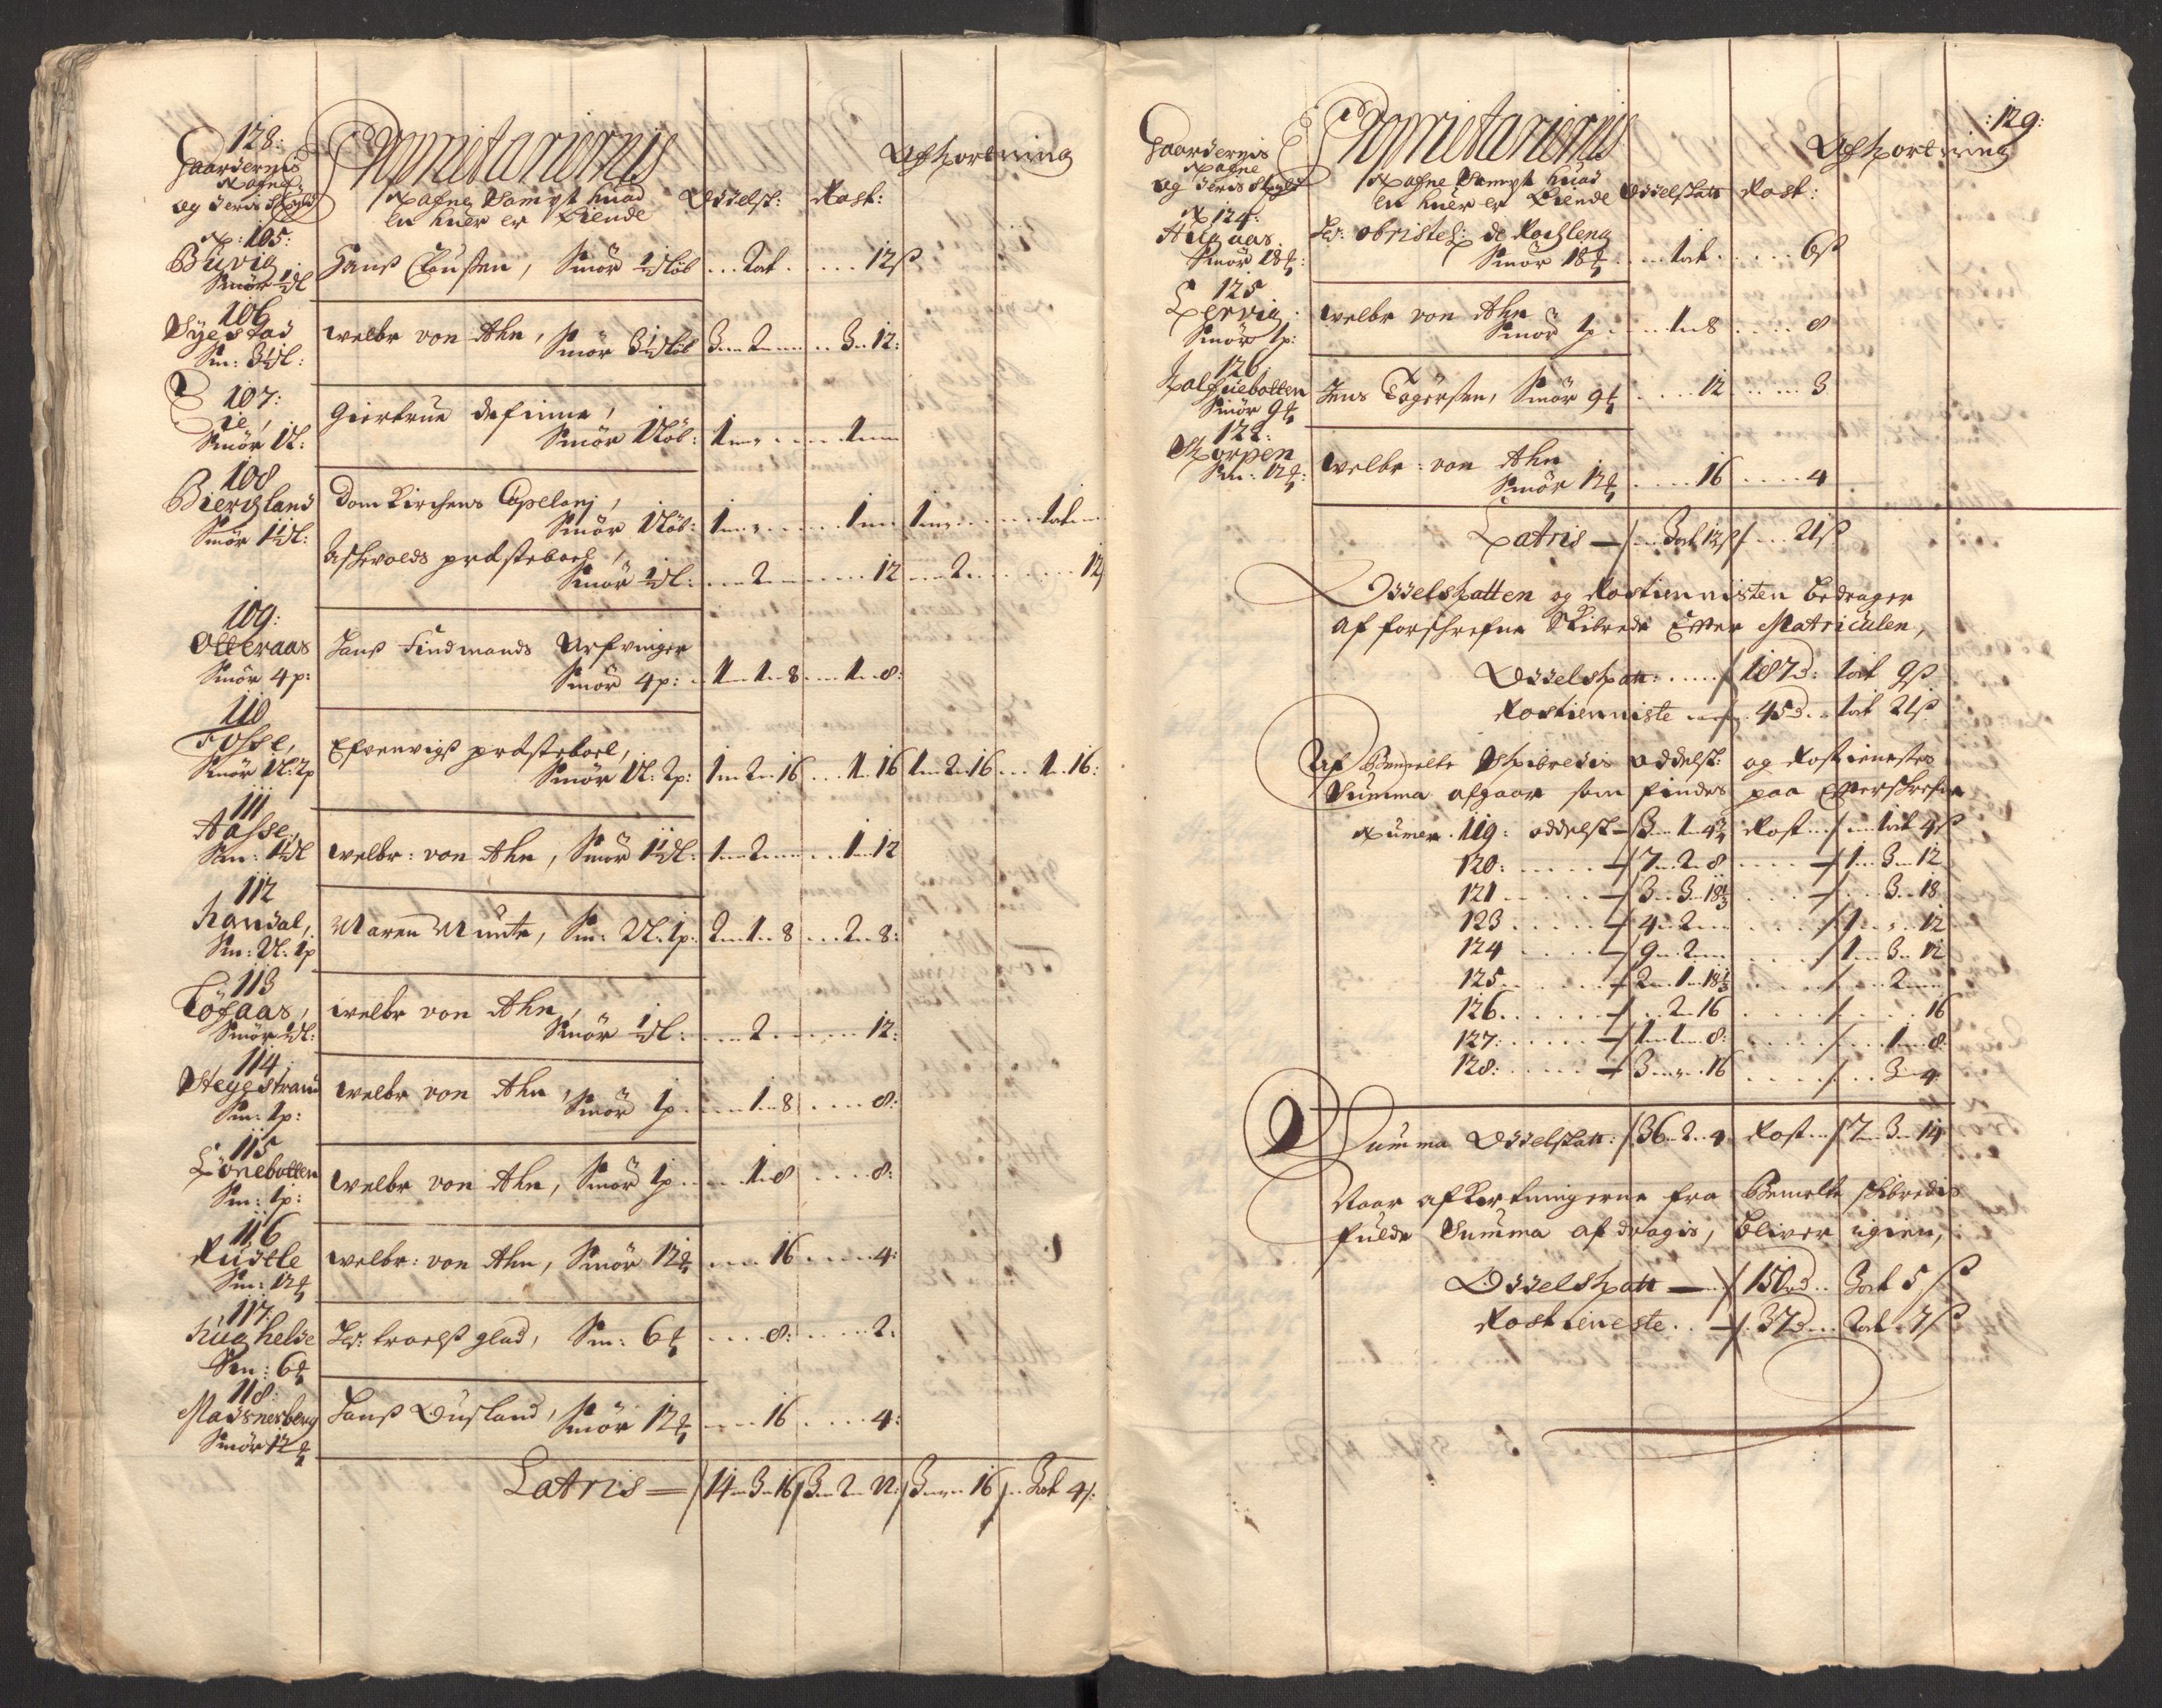 128:
Gaardernis
Nafne
og deris Skyld
Proprietariernis
Nafne Sampt huad
en huer er Eiende
Oddelsk:
Rost:
Afkortning
N: 105:
Buvig
Smör ½ l
Hans Clausen, Smör ½ löb ... 2ort ..... 12ß
106
Syestad
Sm: 3½ l:
welbr von Ahn, Smör 3½ löb 3 - 2 - .. 3 - 12:
107:
Ie,
Smör 1 l:
Giertrue Definne,
Smör 1 löb: 1 - „ ..... 1 -
108
Biergland
Smör 1½ l:
Dom Kirchens Capelanj,
Smör 1 löb: 1 - „ ..... 1 - 1 - „ ..... 1ort
Askevolds præsteboel,
Smör ½ l: ... 2 ..... 12 ... 2 ..... 12
109:
Otteraas
Smör 4 p:
Hans Findmands Arfvinger
Smör 4 p: 1 - 1 - 8 ... 1 - 8:
110
Fosse,
Smör 1 l: 2 p
Efvenvigs præsteboel,
Smör 1 l: 2 p: 1 - 2 - 16 ... 1 - 16 1 - 2 - 16 ... 1 - 16:
111
Aasse,
Sm: 1½ l
welbr: von Ahn, Smör 1½ l: 1 - 2 - ... 1 - 12
112
Handal,
Sm: 2 l: 1 p
Maren Munte, Sm: 2 l: 1 p: 2 - 1 - 8 ... 2 - 8:
113
Töfaas,
Smör ½ l:
welbr von Ahn,
Smör ½ l: .... 2 ..... 12:
114
Steyestrand
Sm: 1 p:
welbr von Ahn,
Smör 1 p .... 1 - 8 .... 8:
115
Lönebotten
Sm: 1 p:
welbr von Ahn, Smör 1 p .... 1 - 8 .... 8:
116
Rustle
Sm: 12
welbr: von Ahn, Smör 12 .... 16 .... 4:
117
Hughelde
Sm: 6
Hr: troels glad, Sm: 6 .... 8: .... 2:
118:
Madsnesberg
Smör 12
Hans Dusland, Smör 12 .... 16 .... 4:
Latris — 14 - 3 - 16 3 - 2 - 22: 3 - „ - 16 .. 3ort 4ß:
:129:
Gaardernis
Nafne
og deris Skyld
Proprietariernis
Nafne Sampt huad
en huer er Eiende
Oddelskatt
Rost:
Afkortning
N 124:
Augaas
Smör 18
Hr: obristel: de Rochleng
Smör 18 .... 1ort ..... 6ß
125
Lervig
Smör 1 p:
welbr von Ahn
Smör 1 p .... 1 - 8 .... 8
126
Kalfuebotten
Smör 9
Jens Tögersen, Smör 9 .... 12 .... 3
122:
Skorpen
Sm: 12
welbr: von Ahn
Smör 12 .... 16 .... 4
Latris — 3ort 12ß ... 21ß
Oddelskatten og Rostiennisten bedrager
af forschrefne Skibrede Efter Matriculen,
Oddelskatt: ..... 187d: 1ort 9ß
Rostienniste .... 45d .. 1ort 21ß
Af Bemelte Skibredis oddelsk: og Rostienestes
Summa afgaar som findes paa Efterschrefne
Numer. 119: oddelsk — 3 - 1 - 4 Rost ... 1ort 4ß
120: ..... 7 - 2 - 8 ..... 1 - 3 - 12
121 ..... 3 - 3 - 18 ..... 3 - 18
123 ..... 4 - 2 - ..... 1 - „ - 12
124 ..... 9 - 2 - ..... 1 - 3 - 12
125 ..... 2 - 1 - 18 ..... 2 -
126 ..... 2 - 16 ..... 16
127: ..... 1 - 1 - 8: ..... 1 - 8
128: ..... 3 - „ - 16 ..... 3 - 4
Summa Oddelskatt: 36 - 2 - 4 Rost .. 7 - 3 - 14
Naar afkortningerne fra Bemelte skibredis
fulde Summa afdragis, bliver igien,
Oddelskatt — 150d .. 3ort 5ß
Rostieneste .. 37d ... 2ort 7ß